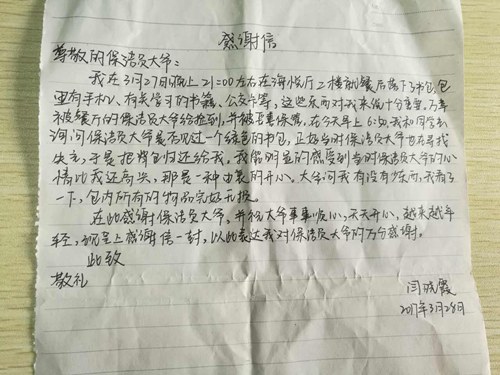 感谢信
尊敬的保洁员大爷：
我在3月27日晚上21:00左右在海悦厅二楼就餐后落下书包，包
里有手机、有关学习的书籍、公交卡等，这些东西对我来说十分重要，万幸
被餐厅的保洁员大爷给捡到，并被妥善保管，在今天早上6:20我和同学去
询问保洁员大爷是否见过一个绿色的书包，正好当时保洁员大爷也在寻找
失主，于是把背包归还给我，我很明显的感受到当时保洁员大爷的心
情比我还高兴，那是一种由衷的开心。大爷问我有没有少东西，我看了
一下，包内所有的物品完好无损。
在此感谢保洁员大爷，并祝大爷事事顺心，天天开心，越来越年
轻，现呈上感谢信一封，以此表达我对保洁员大爷的万分感谢。
此致
敬礼
闫晓霞
2017年3月28日